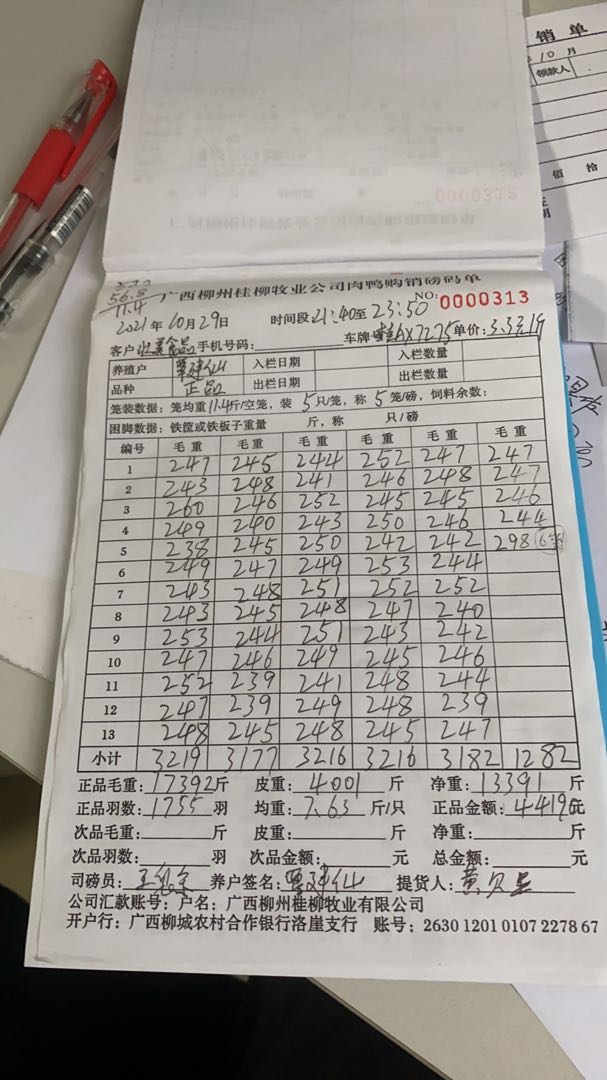 销单
10月
领款人
佰 拾
0000332
56.8
11.4
广西柳州桂柳牧业公司肉鸭购销磅码单
NO: 0000313
2021年10月29日 时间段21:40至23:50
客户 食品 手机号码: 车牌 AX7275 单价:3.3元/斤
养殖户 覃建仙 入栏日期 入栏数量
品种 正品 出栏日期 出栏数量
笼装数据:笼均重11.4斤/空笼,装5只/笼,称5笼/磅,饲料余数:
困脚数据:铁筐或铁板子重量 斤,称 只/磅
编号 毛重 毛重 毛重 毛重 毛重 毛重
1 247 245 244 252 247 247
2 243 248 241 246 248 247
3 260 246 252 245 245 246
4 249 240 243 250 246 244
5 238 245 250 242 242 298 6
6 249 247 249 253 244
7 243 248 251 252 252
8 243 245 248 247 240
9 253 244 251 243 242
10 247 246 249 245 246
11 252 239 241 248 244
12 247 239 249 248 239
13 248 245 248 245 247
小计 3219 3177 3216 3216 3182 1282
正品毛重:17392斤 皮重:4001斤 净重:13391斤
正品羽数:1755羽 均重:7.63斤/只 正品金额:44190元
次品毛重: 斤 皮重: 斤 净重: 斤
次品羽数: 羽 次品金额: 元 总金额: 元
司磅员: 养户签名:覃建仙 提货人:黄
公司汇款账号:户名:广西柳州桂柳牧业有限公司
开户行:广西柳城农村合作银行洛崖支行 账号:2630 1201 0107 2278 67